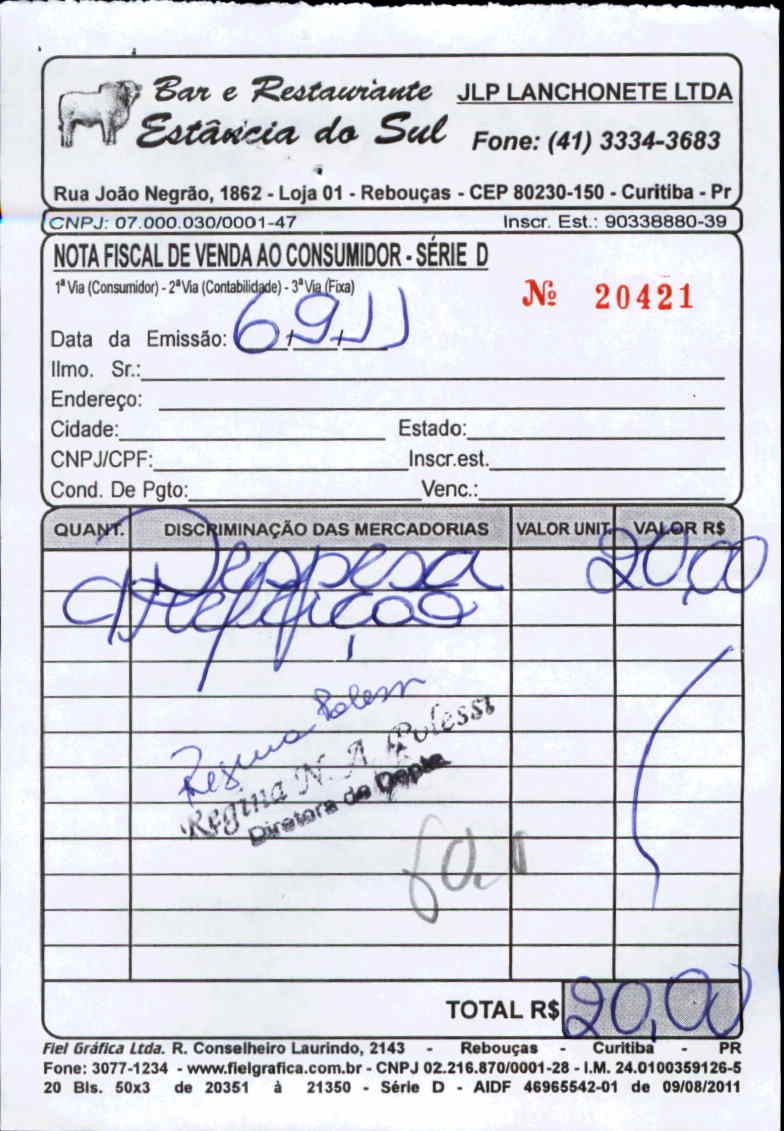 Bar e Restaurante JLP LANCHONETE LTDA
Estância do Sul Fone: (41) 3334-3683
Rua João Negrão, 1862 - Loja 01 - Rebouças - CEP 80230-150 - Curitiba - Pr
CNPJ: 07.000.030/0001-47 Inscr. Est.: 90338880-39
NOTA FISCAL DE VENDA AO CONSUMIDOR - SÉRIE D
1ª Via (Consumidor) - 2ª Via (Contabilidade) - 3ª Via (Fixa)
Nº 20421
Data da Emissão: 6 / 9 / 11
Ilmo. Sr.:
Endereço:
Cidade: Estado:
CNPJ/CPF: Inscr.est.
Cond. De Pgto: Venc.:
QUANT. DISCRIMINAÇÃO DAS MERCADORIAS VALOR UNIT. VALOR R$
Despesa 20,00
Refeição
Regina Polessi
Regina N. A. Polessi
Diretora de Depto.
TOTAL R$ 20,00
Fiel Gráfica Ltda. R. Conselheiro Laurindo, 2143 - Rebouças - Curitiba - PR
Fone: 3077-1234 - www.fielgrafica.com.br - CNPJ 02.216.870/0001-28 - I.M. 24.0100359126-5
20 Bls. 50x3 de 20351 à 21350 - Série D - AIDF 46965542-01 de 09/08/2011